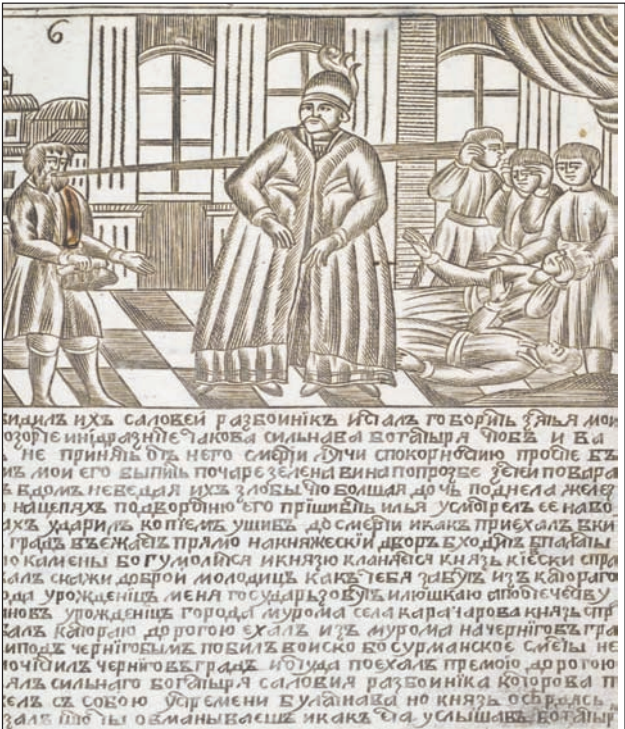 6
видилъ ихъ саловеи разбоиникъ исталъ говорить зятья мои
позорте инидразните такова сильнава богатыря чтобъ и ва
ъ не принять отъ него смерти лутчи спокорностию просте бъ
мъ мои его выпить почаре зелена вина попрозбе зетеи повара
ъ вдомъ неведая ихъ злобы что болшая дочь поднела желез
нацепяхъ подворотню его пришибить илья усмотрелъ ее наво
ахъ ударилъ копiемъ ушибъ до смерти икакъ приехалъ вки
градъ въежаетъ прямо накняжескiи дворъ входитъ впалаты
о камены богу молится икнязю кланяется князь кiевски спра
алъ скажи доброи молодицъ какъ тебя завутъ изъ катораго
ода урожденiцъ меня государь зовутъ илюшкаю апоотечеву
новъ урожденiцъ города мурома села карачарова князь спр
алъ катораю дорогою ехалъ изъ мурома на чернiговъ гра
иподъ чернiговымъ побилъ воиско босурманское сметы не
мочiстилъ чернiговъ градъ ioтуда поехалъ премою дорогою
ялъ сильнаго богатыря саловия разбоиника которова п
елъ съ собою устремени булатнава но князь осердясь
залъ что ты обманываешъ икакъ ета услышавъ богатыр